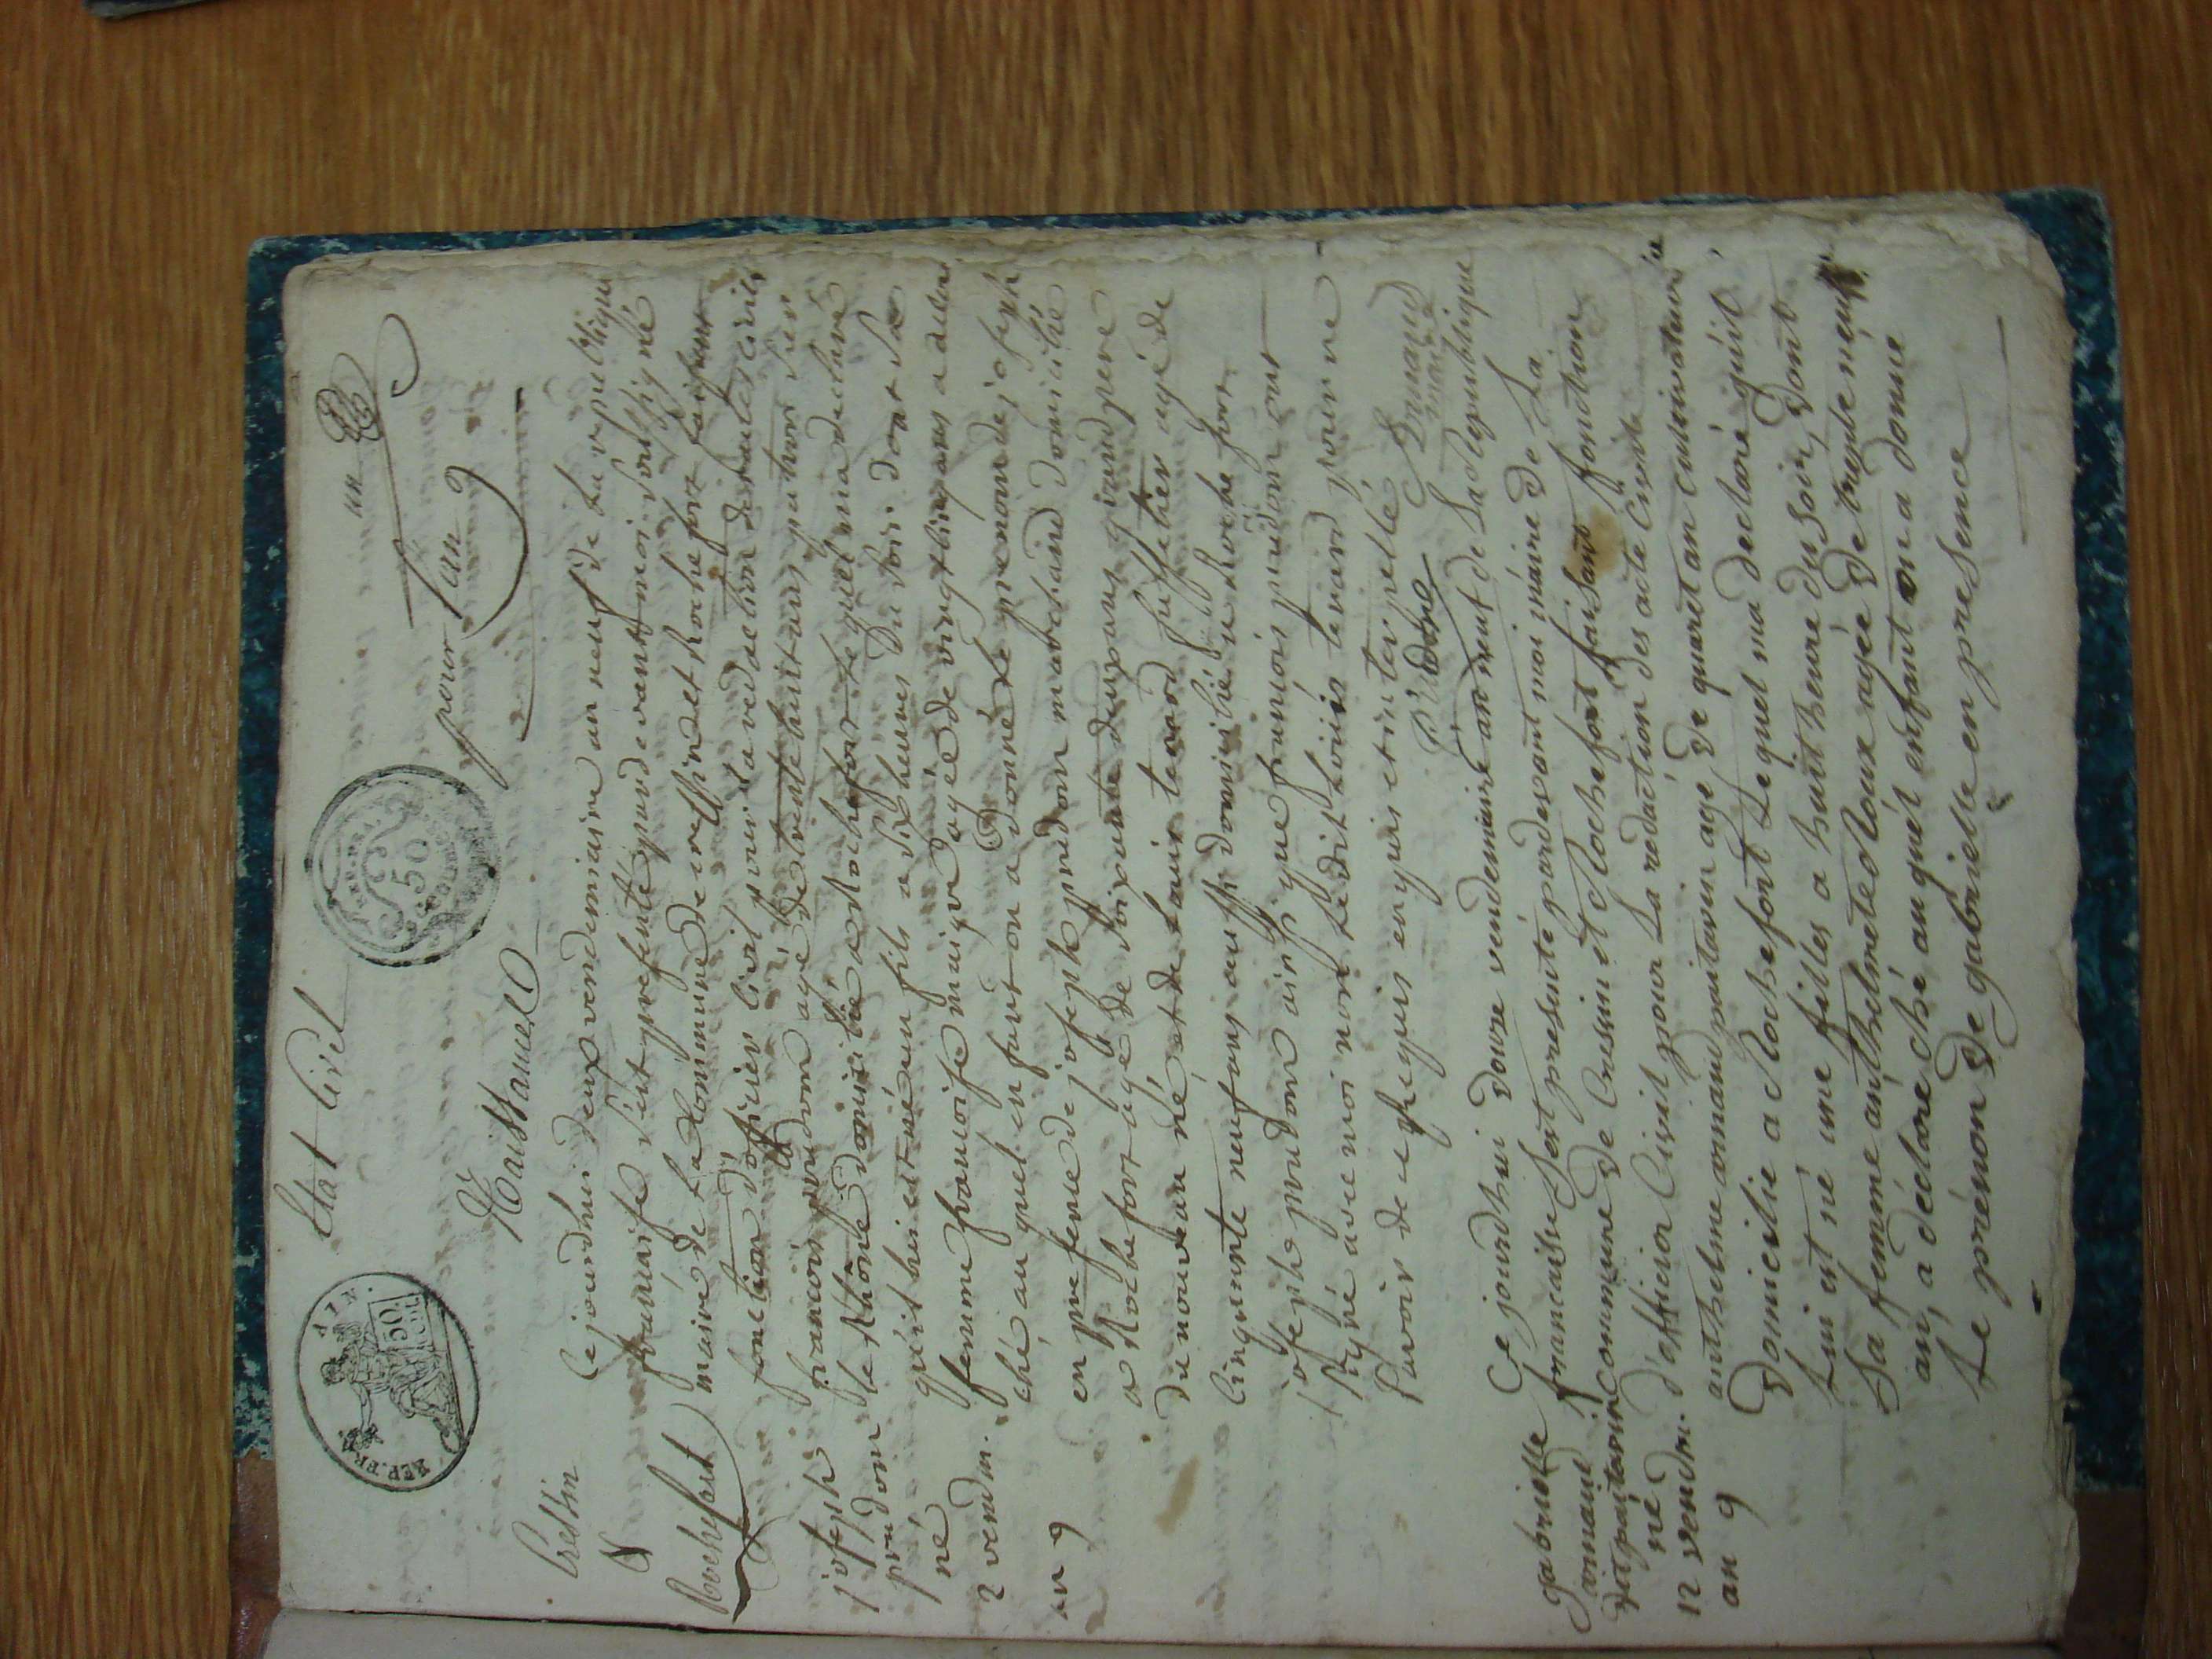 un
Etat Civil
pour l'an 9
REP. FRA.
50
50
Naissances
Cressin
&
Rochefort
Ce jourdhui deux vendemiaire an neuf de la republique
francaise s'est presenté pardevant moi soussigné
maire de la commune de cressin et rochefort faisant
fonction d'officier civil pour la redaction des actes civils
joseph
prudon
né
2 vendm.
an 9
francois prudon agé de trente huit ans
le Rhone domicilié a Rochefort le quel m'a declaré
qu'il lui est né un fils a dix heures du soir dont sa
femme francoise agée de vingt cinq ans a
ché au quel enfant on a donné le prenom de joseph
en presence de joseph prudon marchand domicilié
a Rochefort agé de soixante deux ans grand pere
du nouveau né et de louis tenand agé de
cinquante neuf ans aussi domicilié a Rochefort
joseph prudon ainsi que francois prudon ont
signé avec moi non ledit louis tenand pour ne
savoir de ce requis enquis et interpellé
Prudone
maire
gabrielle
armand
dit pantarin
né
12 vendm.
an 9
Ce jourdhui douze vendemiaire an neuf de La Republique
francaise s'est presenté pardevant moi maire de La
Commune de Cressin et Rochefort faisant fonction
d'officier Civil pour La redaction des acte Civile
anthelme armand pantarin agé de quarant an cultivature
Domicilie a Rochefort Lequel ma declaré quil
Lui est né une filles a huit heure du soir, dont
Sa femme anthelmete Roux agée de trente neuf
an, a declaré ché au quel enfant on a donne
Le prénon de gabrielle en presence